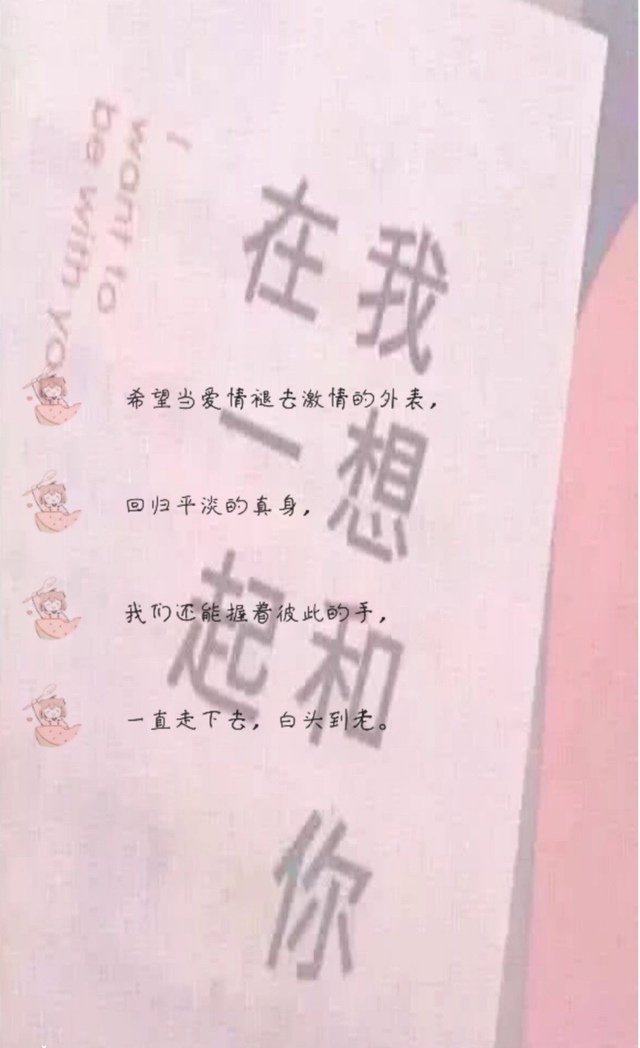 I
want to
be with yo
我想和你
在一起
希望当爱情褪去激情的外表，
回归平淡的真身，
我们还能握着彼此的手，
一直走下去，白头到老。